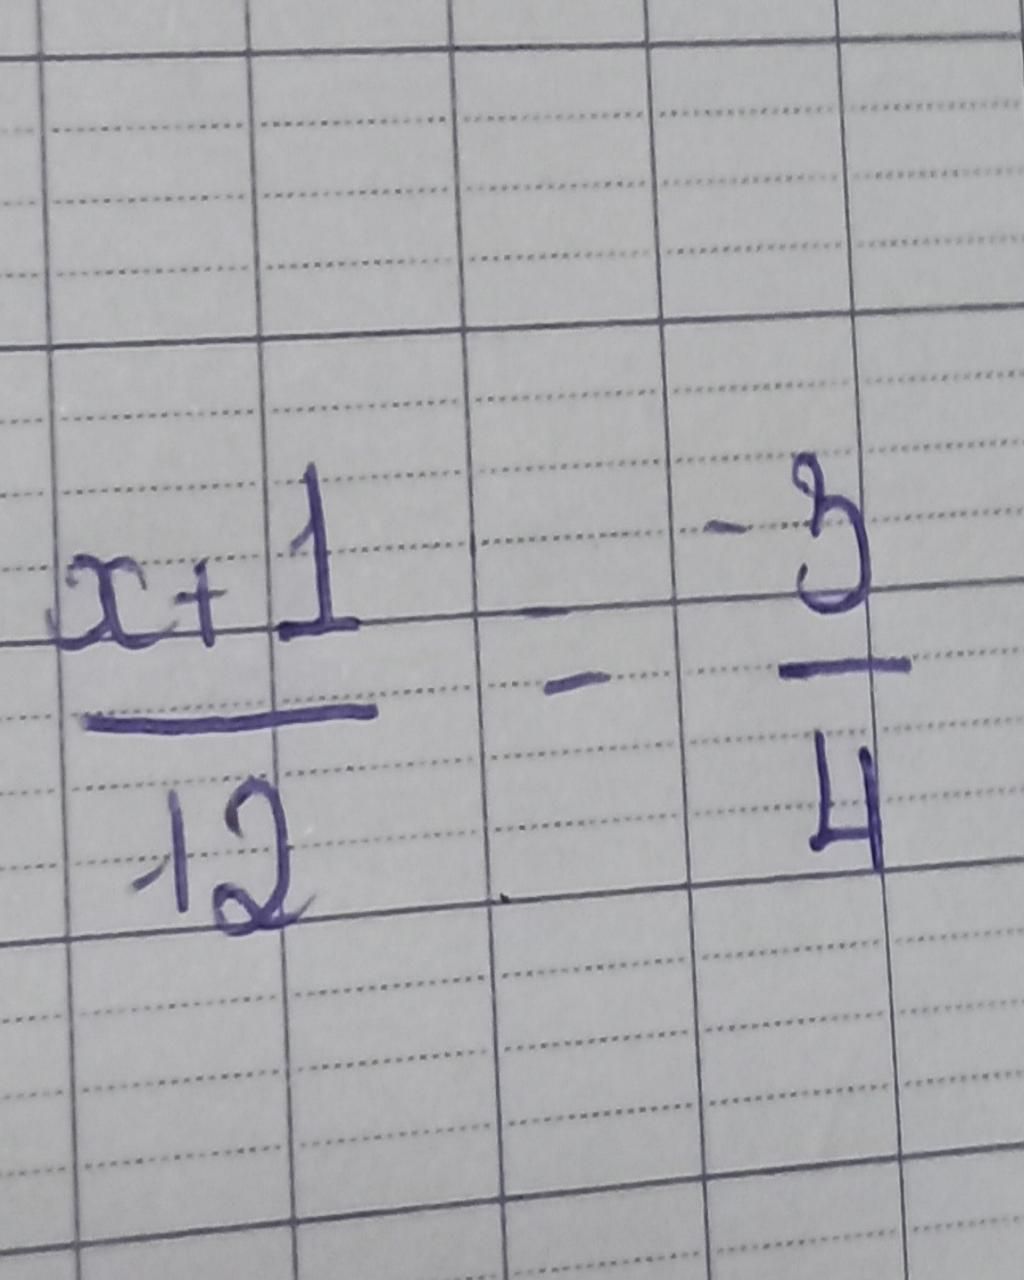 x+1/12 = -3/4